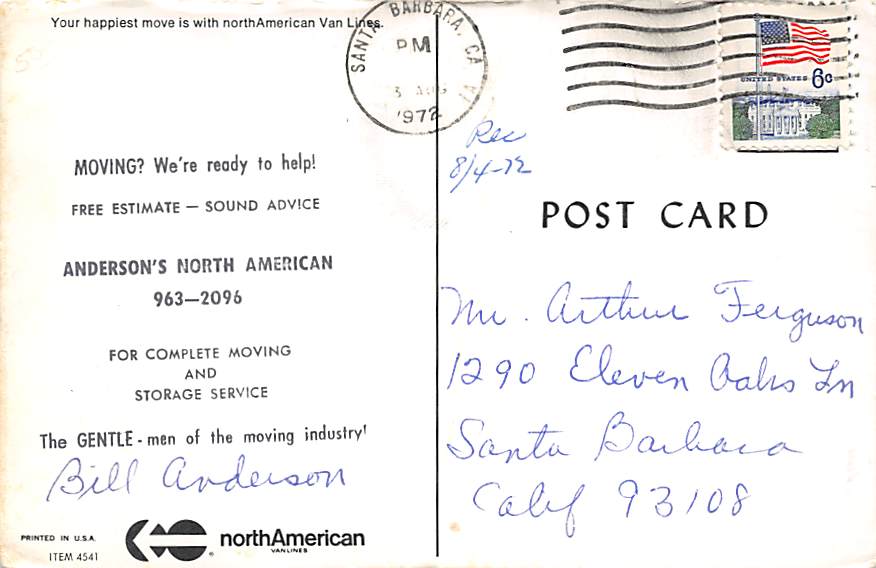 Your happiest move is with northAmerican Van Lines.
MOVING? We're ready to help!
FREE ESTIMATE — SOUND ADVICE
ANDERSON'S NORTH AMERICAN
963—2096
FOR COMPLETE MOVING
AND
STORAGE SERVICE
The GENTLE - men of the moving industry!
Bill Anderson
PRINTED IN U.S.A.
ITEM 4541
northAmerican
VAN LINES
®
SANTA BARBARA, CA
PM
3 AUG
1972
UNITED STATES 6c
Rec
8/4-72
POST CARD
Mr. Arthur Ferguson
1290 Eleven Oaks Ln
Santa Barbara
Calif 93108